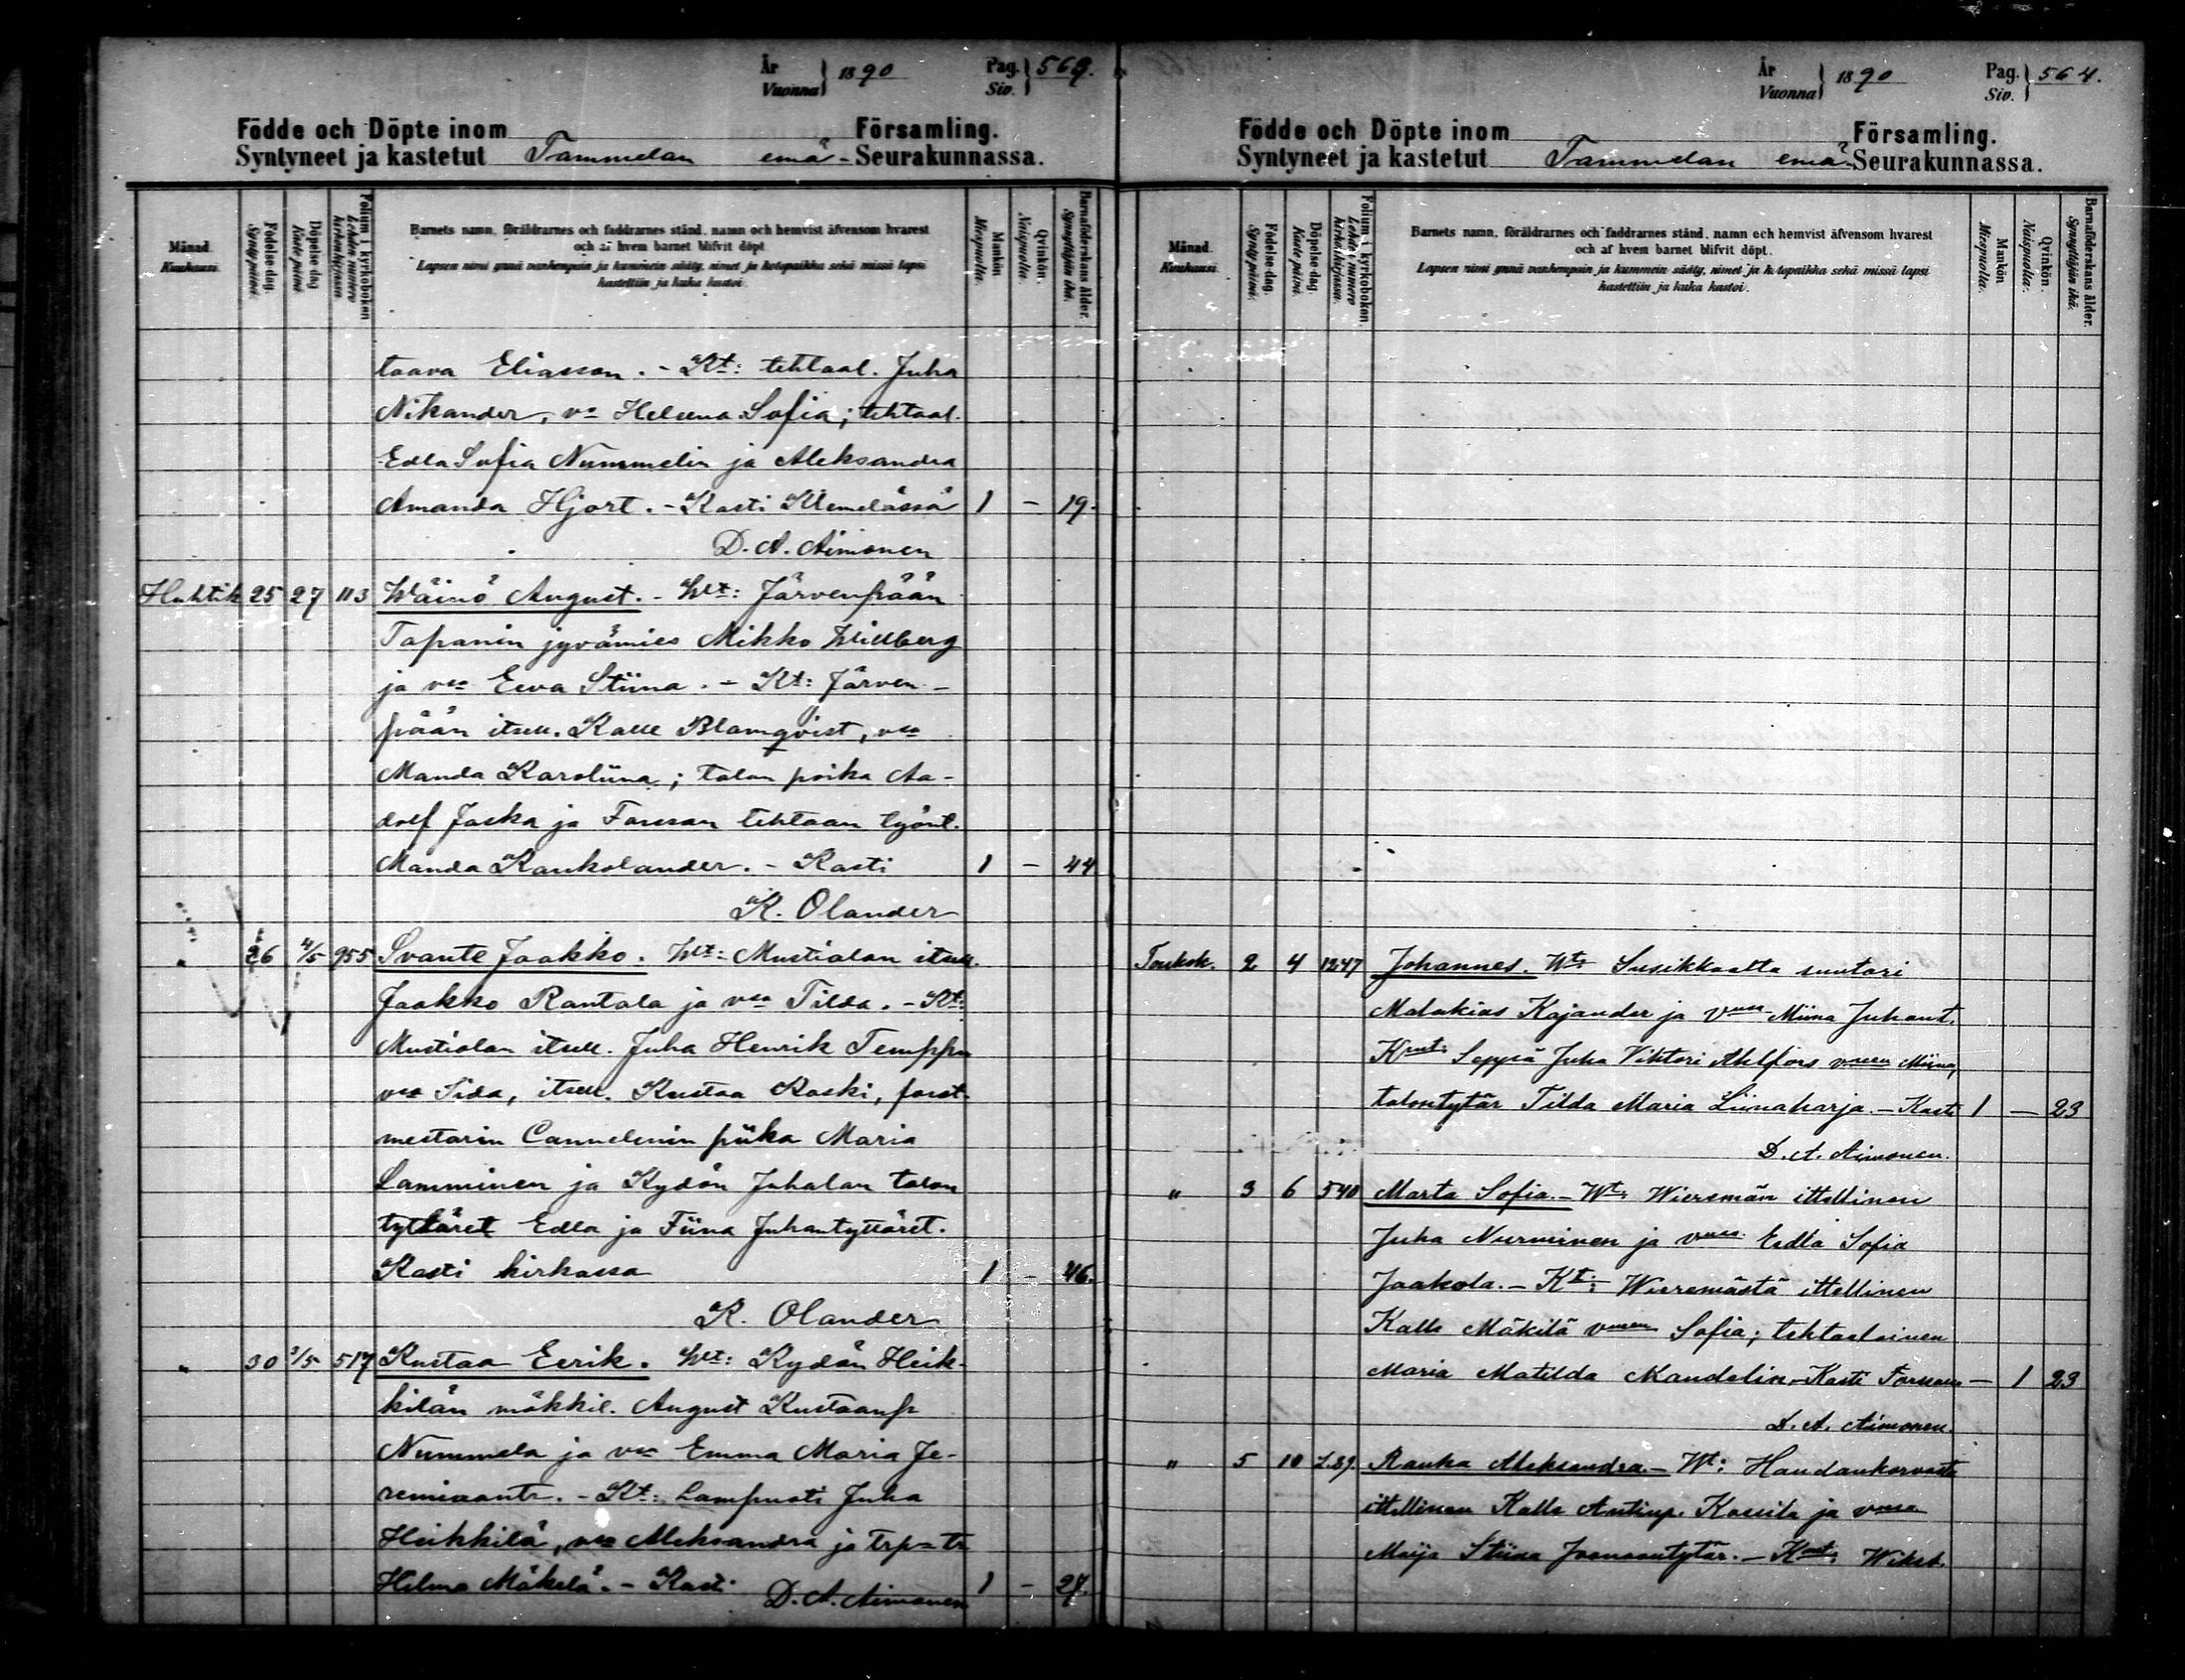 År
Vuonna } 1890 Pag.
Siv. } 569.
Födde och Döpte inom Församling.
Syntyneet ja kastetut Tammelan emä- Seurakunnassa.
Månad. Kuukausi.
Födelse-dag. Synty päivä.
Döpelse-dag. Kaste päivä.
Folium i kyrkoboken. Lehden numero kirkonkirjassa.
Barnets namn, föräldrarnes och faddrarnes stånd, namn och hemvist äfvensom hvarest
och af hvem barnet blifvit döpt.
Lapsen nimi ynnä vanhempain ja kummein sääty, nimet ja kotopaikka sekä missä lapsi
kastettiin ja kuka kastoi.
Mankön. Miespuolia.
Qvinkön. Naispuolia.
Barnaföderskans ålder. Synnyttäjän ikä.
taava Eliasson. - Kt: tehtaal. Juha
Nikander, va Heleena Sofia; tehtaal.
Edla Sofia Nummelin ja Aleksandra
Amanda Hjort. - Kasti Klemelässä 1 - 19.
D. A. Aimonen
Huhtik 25 27 113 Wäinö August. - Wt: Järvenpään
Tapanin jyvämies Mikko Willberg
ja vsa Eeva Stiina. - Kt: Järven-
pään itsell. Kalle Blomqvist, vsa
Manda Karoliina; talon poika Aa-
dolf Jaska ja Forssan tehtaan työnt.
Manda Kankolander. - Kasti 1 - 44
K. Olander
" 26 4/5 955 Svante Jaakko. Wt: Mustialan itsell.
Jaakko Rantala ja vsa Tilda. - Kt:
Mustialan itsell. Juha Henrik Temppu
vsa Sida, itsell. Kustaa Koski, forst-
mestarin Cannelenin piika Maria
Lamminen ja Kydön Juhalan talon
tyttäret Edla ja Fiina Juhantyttäret.
Kasti kirkossa 1 - 46.
K. Olander
" 30 2/5 517 Kustaa Eerik. Wt: Kydön Heik-
kilän mökkil. August Kustaanp
Nummela ja vsa Emma Maria Je-
remiaantr. - Kt: Lampuoti Juha
Heikkilä, vsa Aleksandra ja trp-tr
Helma Mäkelä. - Kasti 1 - 27.
D. A. Aimonen
År
Vuonna } 1890 Pag.
Siv. } 564.
Födde och Döpte inom Församling.
Syntyneet ja kastetut Tammelan emä- Seurakunnassa.
Månad. Kuukausi.
Födelse-dag. Synty päivä.
Döpelse-dag. Kaste päivä.
Folium i kyrkoboken. Lehden numero kirkonkirjassa.
Barnets namn, föräldrarnes och faddrarnes stånd, namn och hemvist äfvensom hvarest
och af hvem barnet blifvit döpt.
Lapsen nimi ynnä vanhempain ja kummein sääty, nimet ja kotopaikka sekä missä lapsi
kastettiin ja kuka kastoi.
Mankön Miespuolia.
Qvinkön. Naispuolia.
Barnaföderskans ålder. Synnyttäjän ikä.
Toukok. 2 4 1247 Johannes. Wt: Susikkaalta suutari
Malakias Kajander ja Vnsa Miina Juhant.
Kmt: Seppä Juha Viktori Ahlfors vnsa Miina,
talontytär Tilda Maria Liinaharja. - Kasti 1 - 23
D. A. Aimonen.
" 3 6 540 Marta Sofia. - Wt: Wieremän ittellinen
Juha Nurminen ja vnsa Eedla Sofia
Jaakola. - Kt: Wieremästä ittellinen
Kalle Mäkilä vnsa Sofia; tehtaalainen
Maria Matilda Mandelin. - Kasti Forssan - 1 23
D. A. Aimonen.
" 5 10 L.89. Rauha Aleksandra. - Wt: Haudankorvasta
ittellinen Kalle Antinp. Kassila ja vnsa
Maija Stiina Joonaantytär. - Kmt: Wikst.